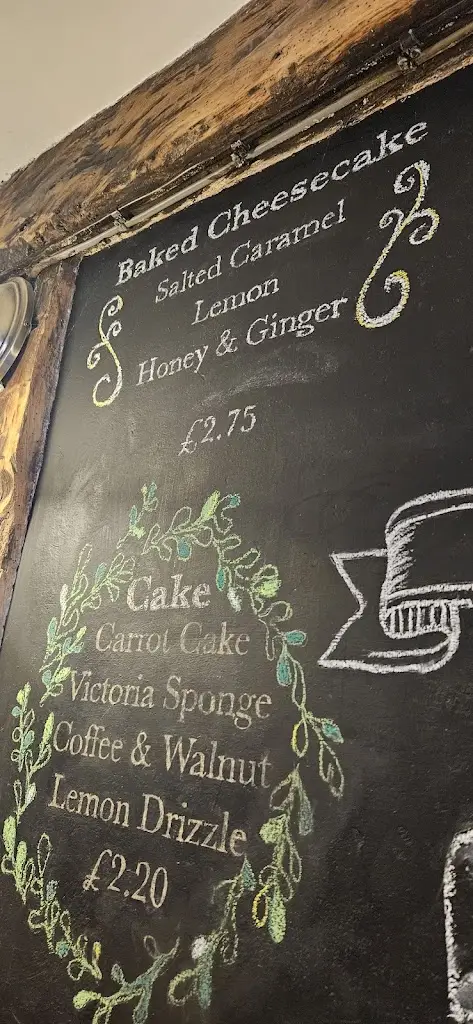 Baked Cheesecake
Salted Caramel
Lemon
Honey & Ginger
£2.75
Cake
Carrot Cake
Victoria Sponge
Coffee & Walnut
Lemon Drizzle
£2.20